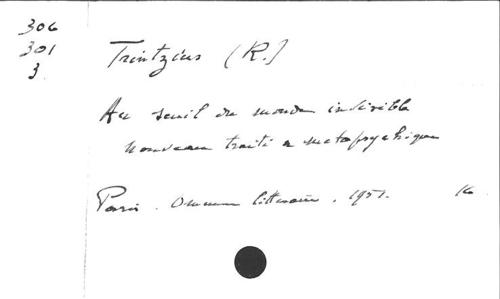 306
301
3
Trintzius (R.)
Au seuil du monde invisible
nouveau traité de métapsychique
Paris. Omnium littéraire, 1951. 16